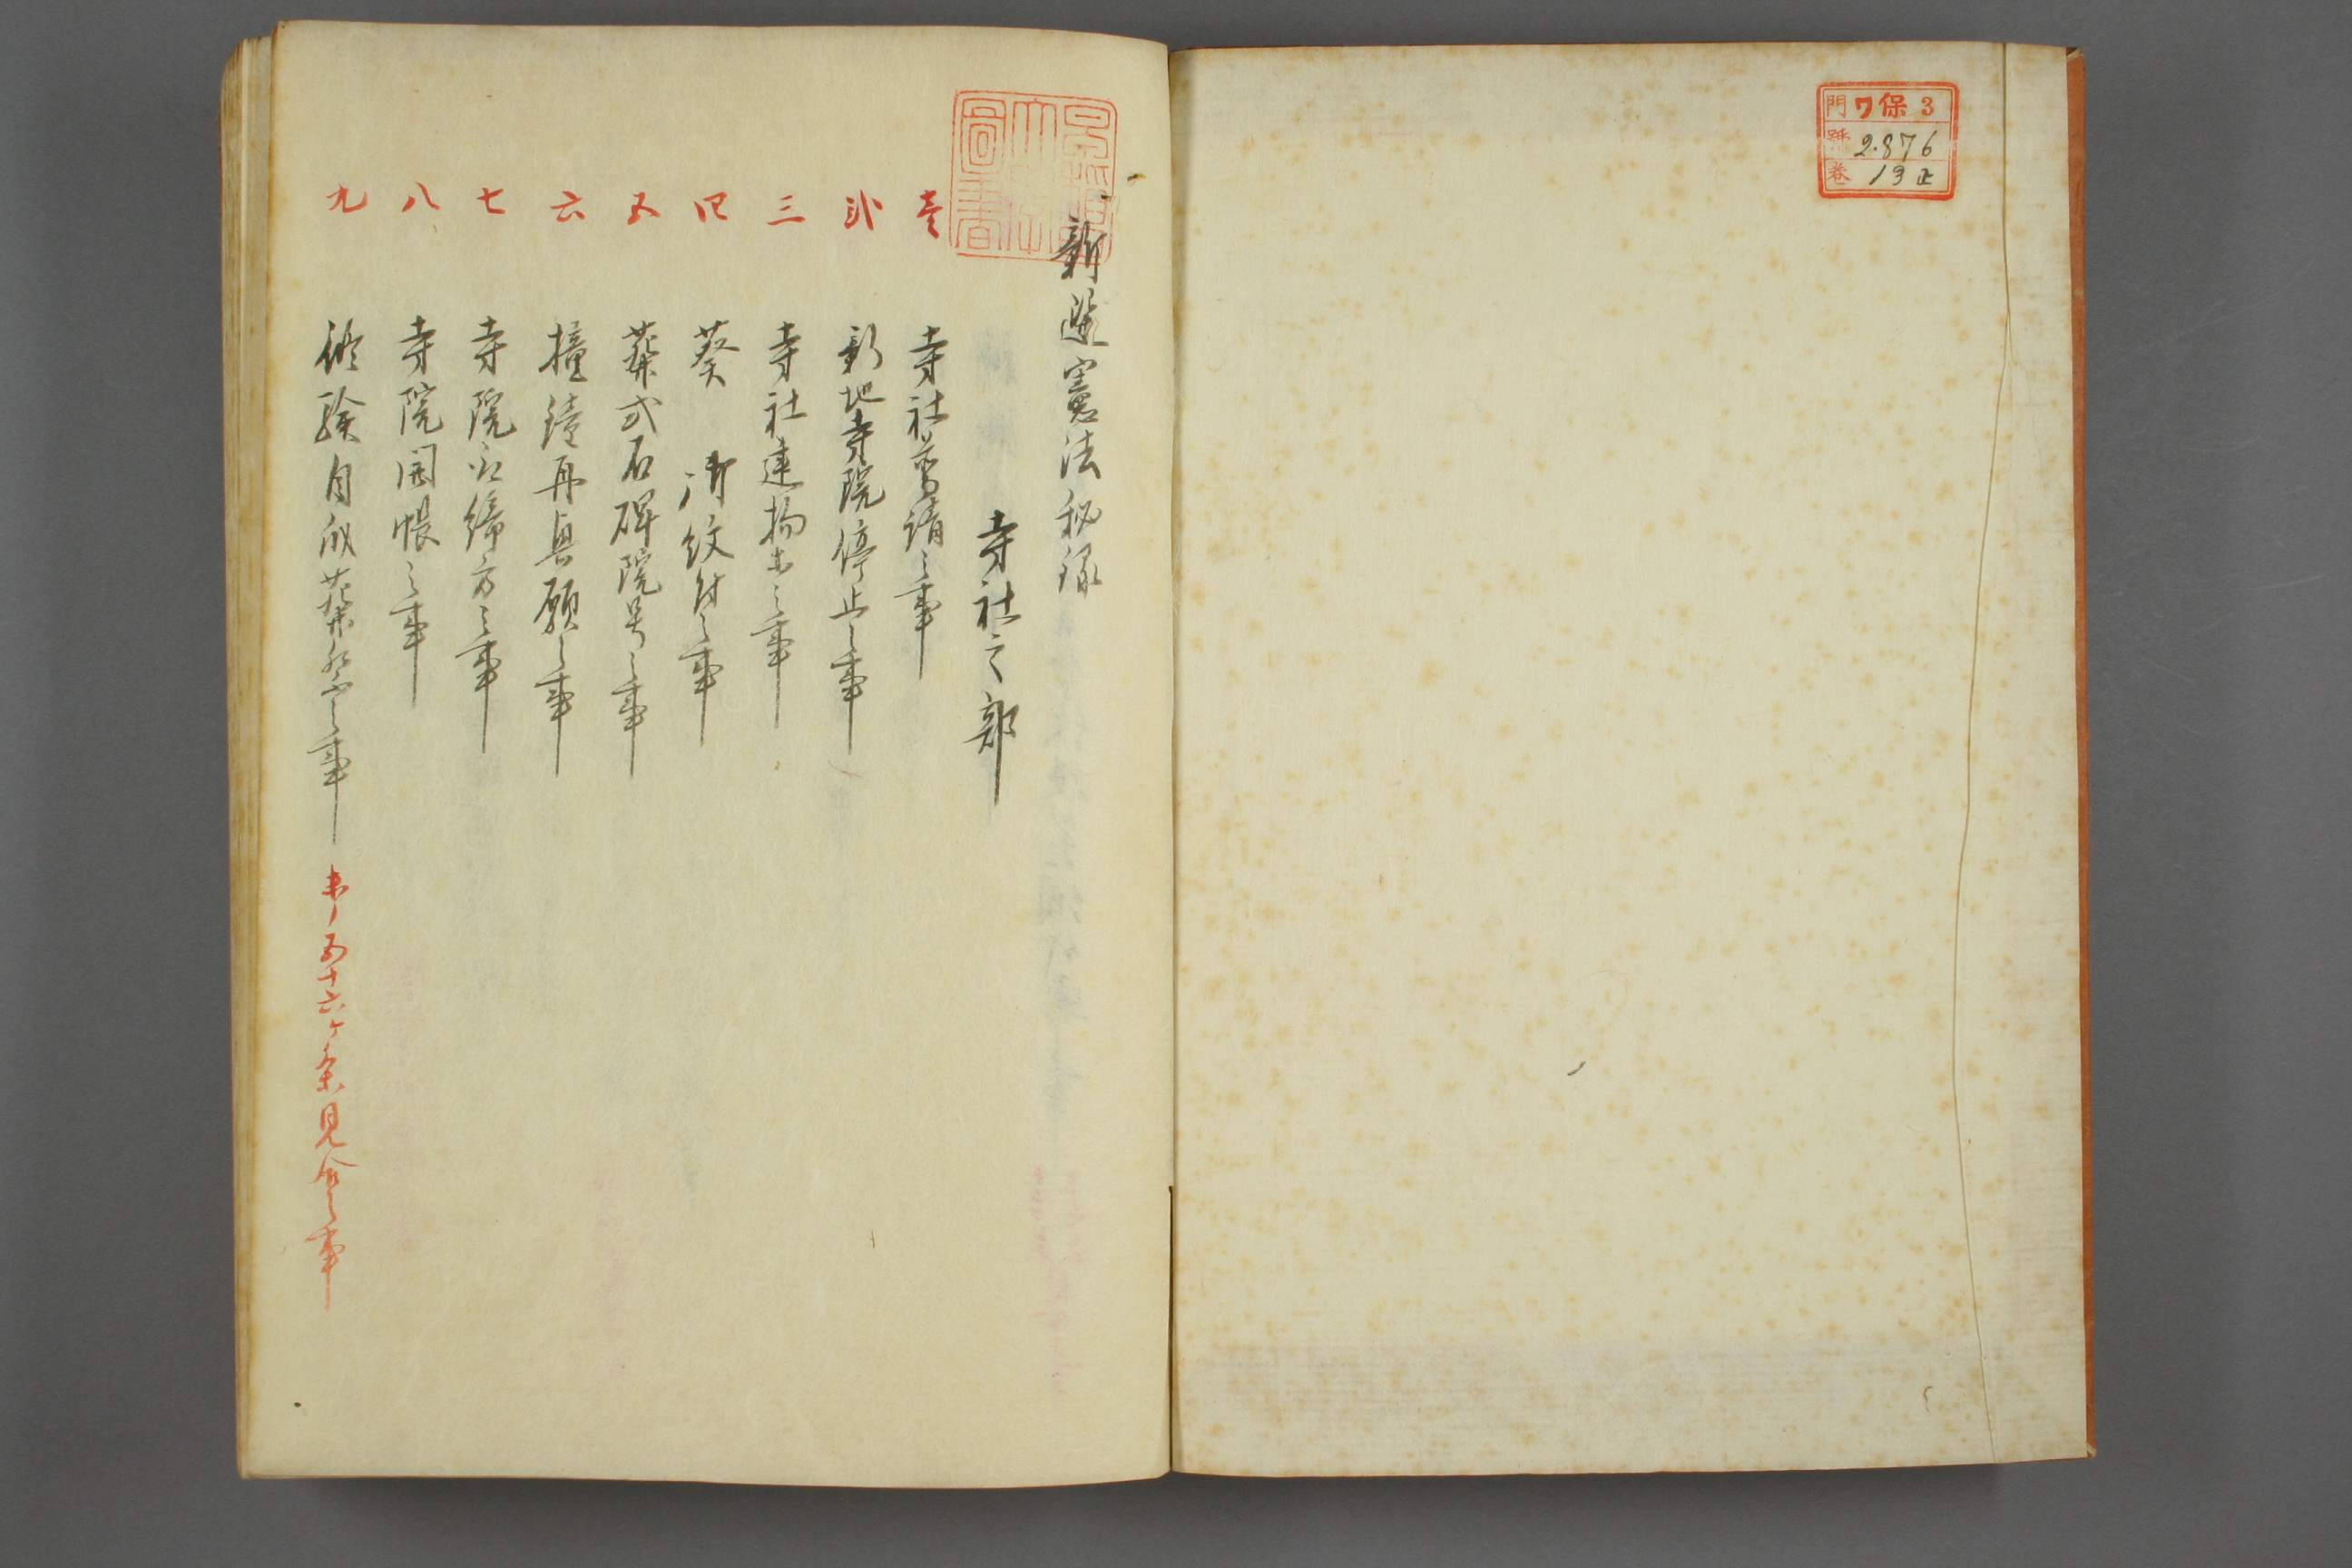 門 ワ保 3
號 2.876
卷 13止
新選憲法秘録
寺社之部
壱 寺社普請之事
弐 新地寺院停止之事
三 寺社建物等之事
四 葵御紋付之事
五 葬式石碑院号之事
六 撞鐘再興願之事
七 寺院取締方之事
八 寺院開帳之事
九 修験自戒葬祭之事 末ノ五十六ヶ条見合之事